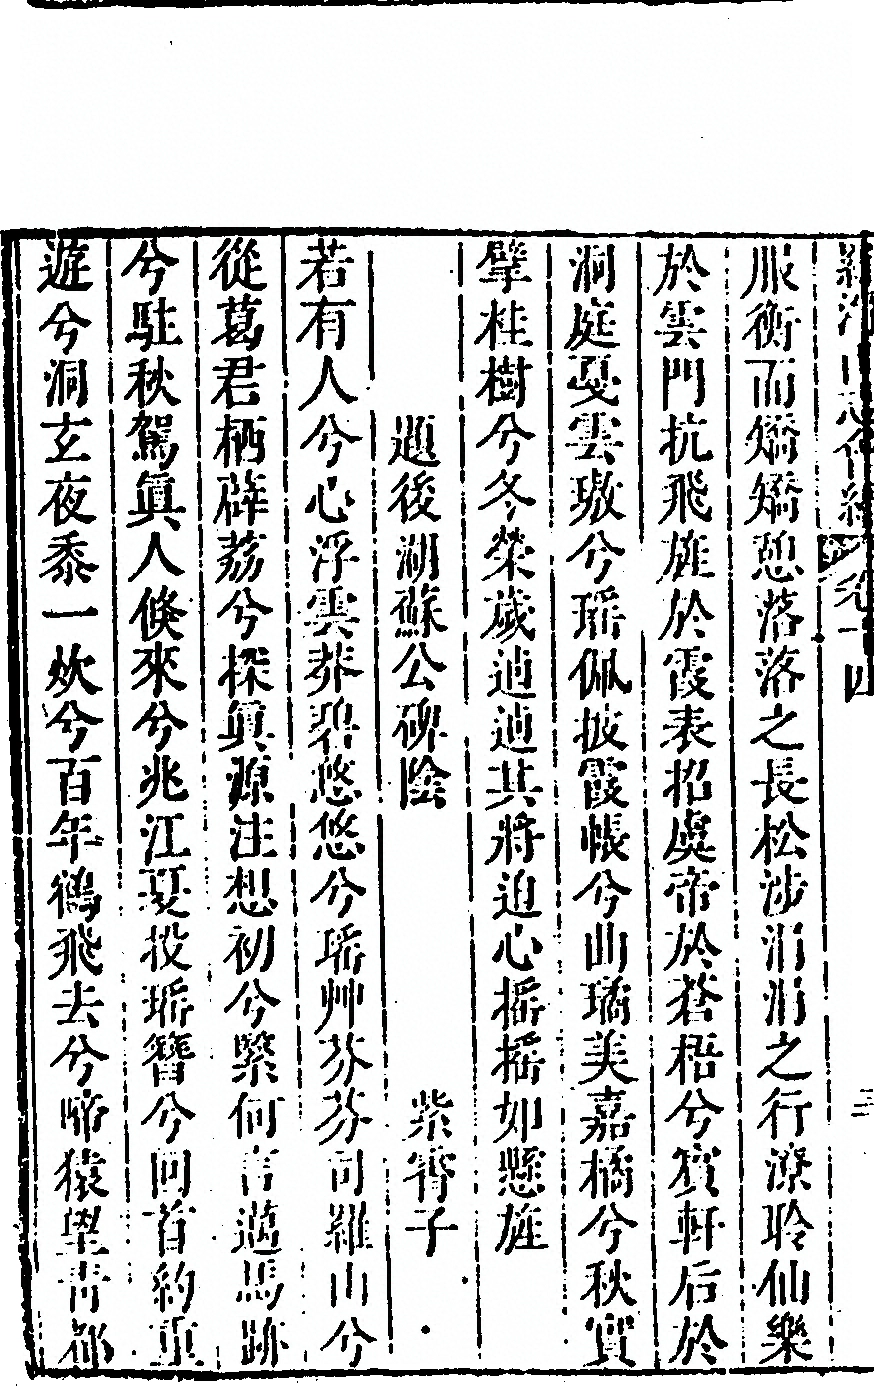 服衡而矯矯憩落落之長松涉涓涓之行潦聆仙樂
於雲門抗飛旌於霞表招虞帝於蒼梧兮賓軒后於
洞庭戞雲璈兮瑶佩披霞帳兮曲璚美嘉橘兮秋實
擘桂樹兮冬榮歲遒遒其將迫心摇摇如懸旌
題後湖蘇公碑陰 紫霄子
若有人兮心浮雲莽碧悠悠兮瑶艸芬芬司羅山兮
從葛君栖薜荔兮探眞源注想初兮繄何言邁馬跡
兮駐秋駕眞人倏來兮兆江夏投瑶簪兮回首約重
遊兮洞玄夜黍一炊兮百年鶴飛去兮啼猿望青都